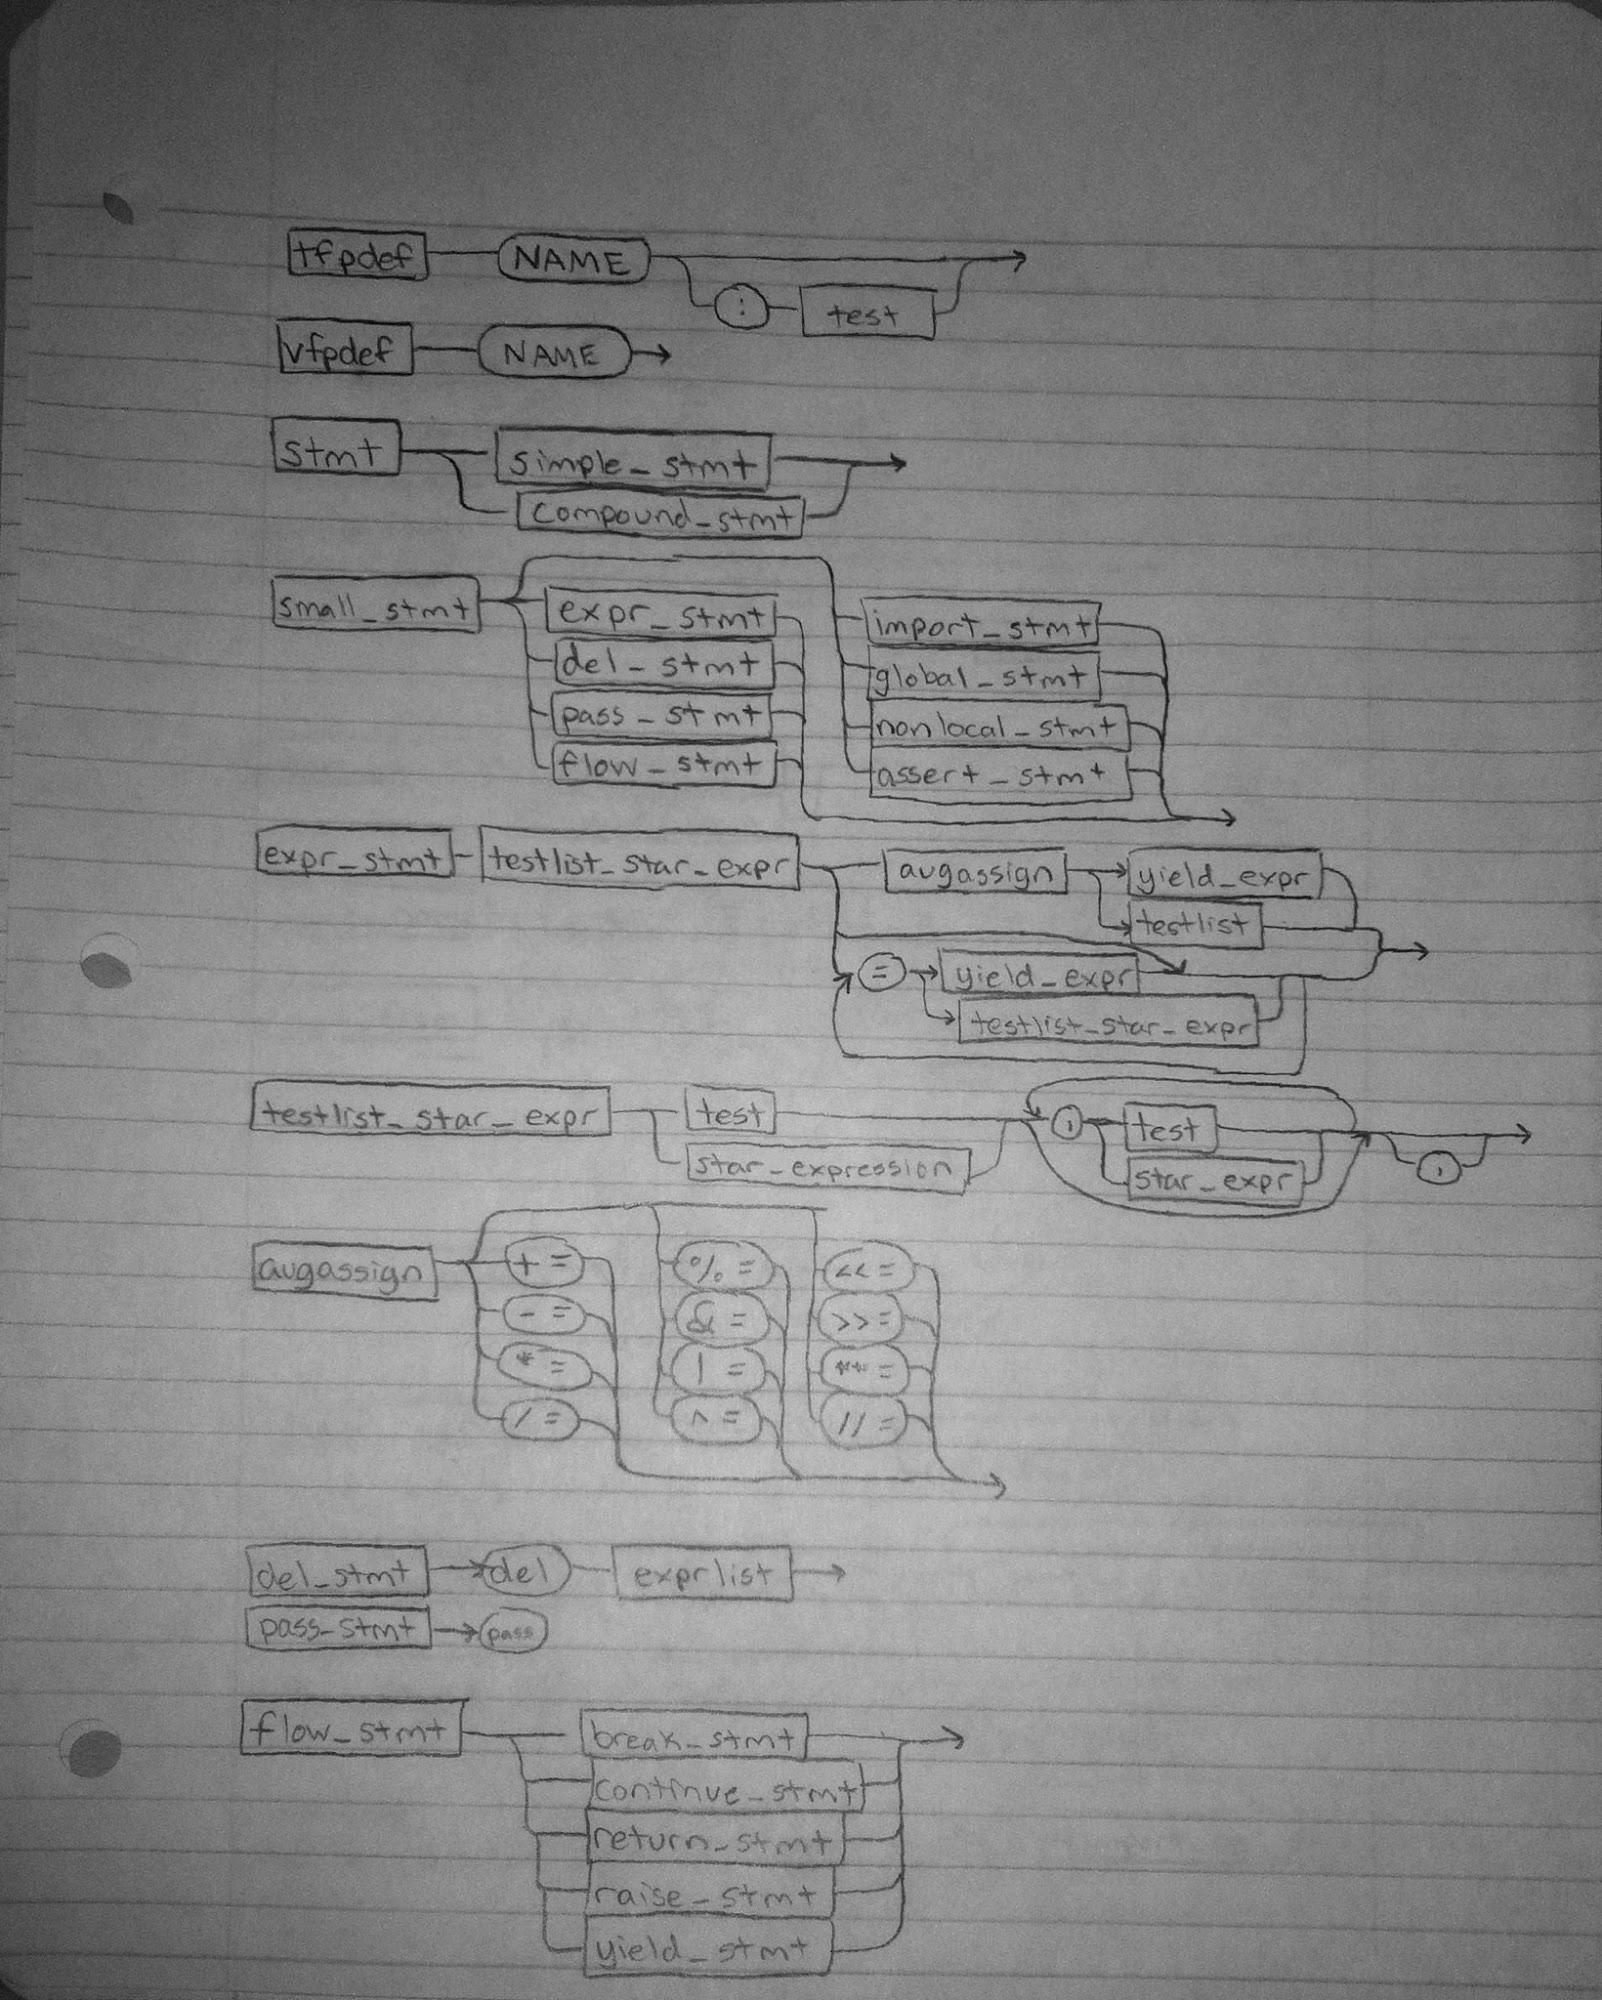 tfpdef NAME
: test
vfpdef NAME
stmt simple_stmt
compound_stmt
small_stmt expr_stmt import_stmt
del_stmt global_stmt
pass_stmt nonlocal_stmt
flow_stmt assert_stmt
expr_stmt testlist_star_expr augassign yield_expr
testlist
= yield_expr
testlist_star_expr
testlist_star_expr test , test
star_expression star_expr ,
augassign += %= <<=
-= &= >>=
*= |= **=
/= ^= //=
del_stmt del exprlist
pass_stmt pass
flow_stmt break_stmt
continue_stmt
return_stmt
raise_stmt
yield_stmt